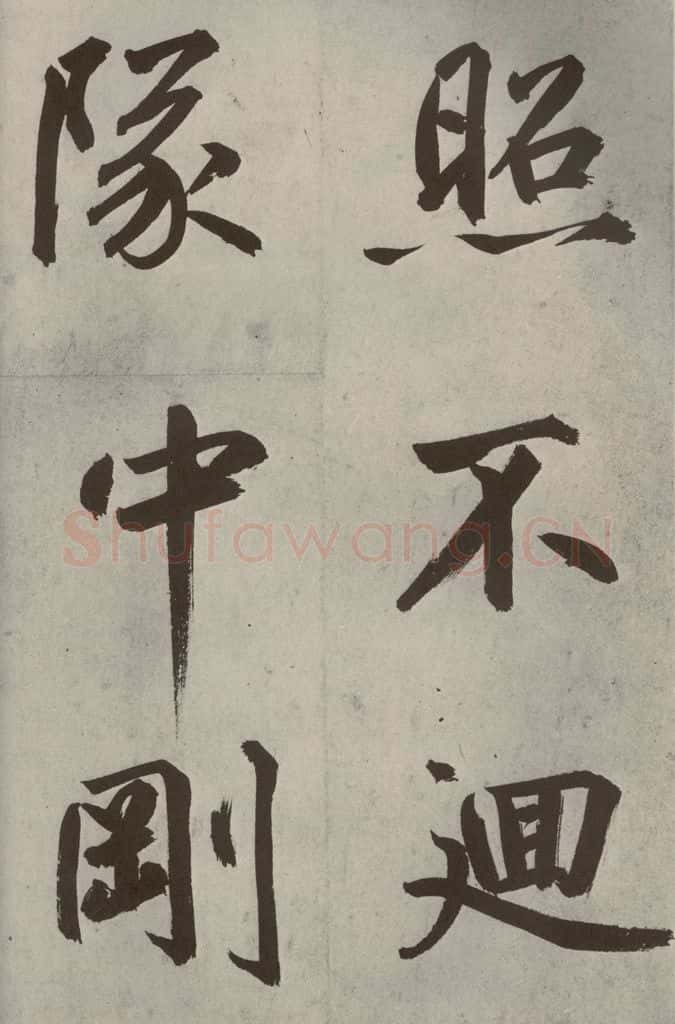 照不迴
隊中剛
Shufawang.CN